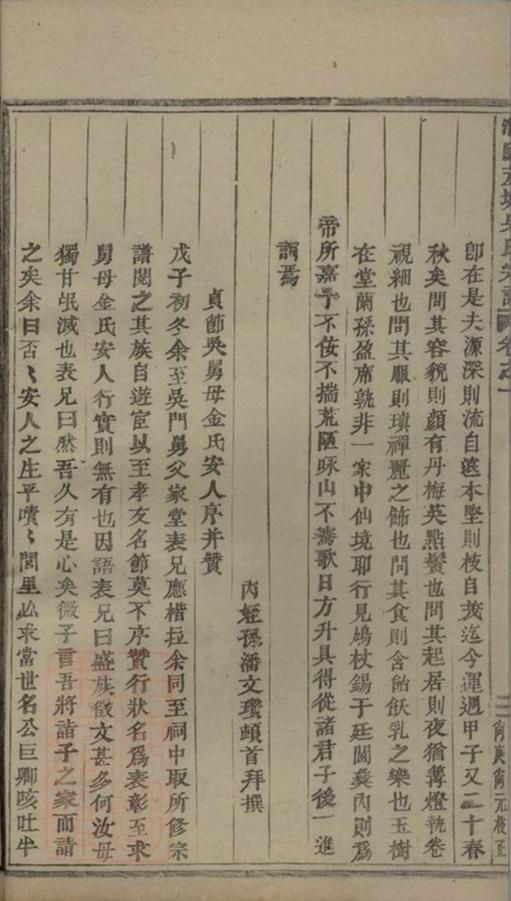 卽在是夫源深則流自遠本堅則枝自茂迄今運週甲子又二十春
秋矣問其容貌則顏有丹梅英點鬢也問其起居則夜猶篝燈執卷
視細也問其服則瑱禪麗之飾也問其食則含飴飫乳之樂也玉樹
在堂蘭孫盈席孰非一家中仙境耶行見鳩杖錫于廷闈奕內則爲
帝所嘉予不佞不揣荒陋咏山不騫歌日方升具得從諸君子後一進
詞焉
內姪孫潘文瓚頓首拜撰
貞節吳舅母金氏安人序并贊
戊子初冬余至吳門舅父家堂表兄應楷拉余同至祠中取所修宗
譜閱之其族自遊宦以至孝友名節莫不序贊行狀名爲表彰至求
舅母金氏安人行實則無有也因語表兄曰盛族徵文甚多何汝母
獨甘泯滅也表兄曰然吾久有是心矣微子言吾將詣子之家而請
之矣余曰否〻安人之生平嘖〻閭里必求當世名公巨卿咳吐半